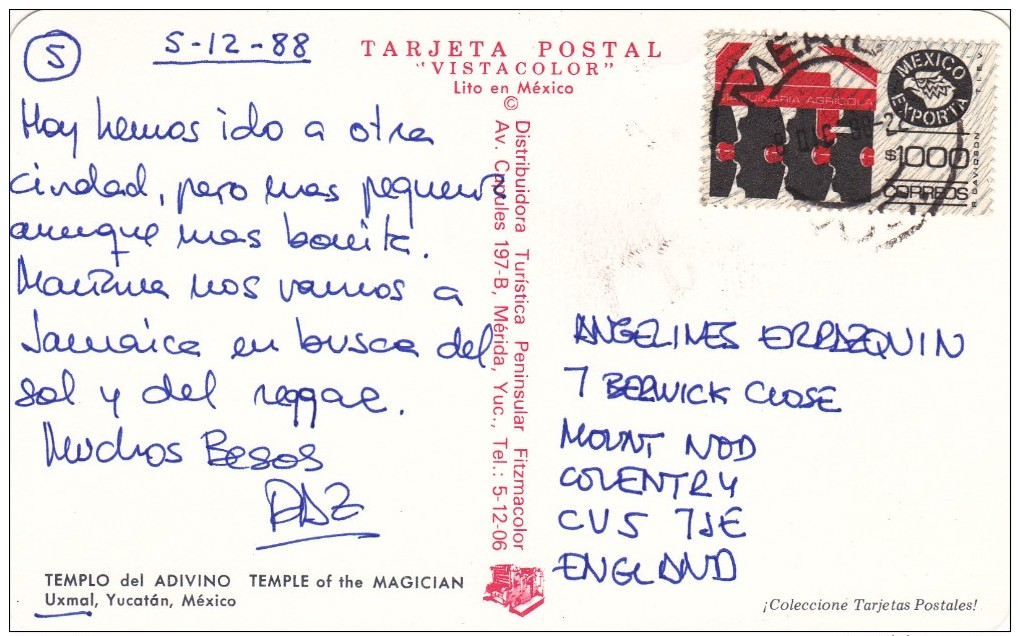 5
5-12-88
TARJETA POSTAL
"VISTACOLOR"
Lito en México
©
Hoy hemos ido a otra
ciudad, pero mas pequeña
aunque mas bonita.
Mañana nos vamos a
Jamaica en busca del
sol y del reggae.
Muchos Besos
PAZ
TEMPLO del ADIVINO TEMPLE of the MAGICIAN
Uxmal, Yucatán, México
Distribuidora Turística Peninsular Fitzmacolor
Av. Cupules 197-B, Mérida, Yuc., Tel.: 5-12-06
MEXICO
EXPORTA
MAQUINARIA AGRICOLA
$1000
CORREOS
T.I.E.V.
R. DAVIDSON
ANGELINES ERRAZQUIN
7 BERWICK CLOSE
MOUNT NOD
COVENTRY
CV5 7JE
ENGLAND
¡Coleccione Tarjetas Postales!